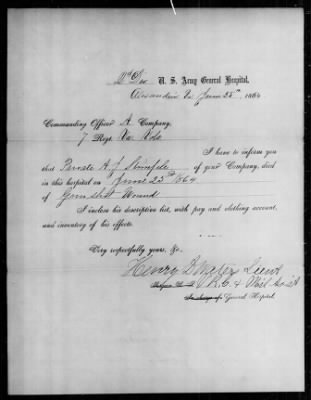 U. S. Army General Hospital,
June 25th, 1864
Commanding Officer A. Company,
7 Regt. Va. Vols
I have to inform you
that Private A. J. of your Company, died
in this hospital on June 25th 1864
of Gun Shot Wound
I inclose his descriptive list, with pay and clothing account,
and inventory of his effects.
Very respectfully yours, &c.
Henry Lieut
V. R. C. &
In charge of General Hospital.